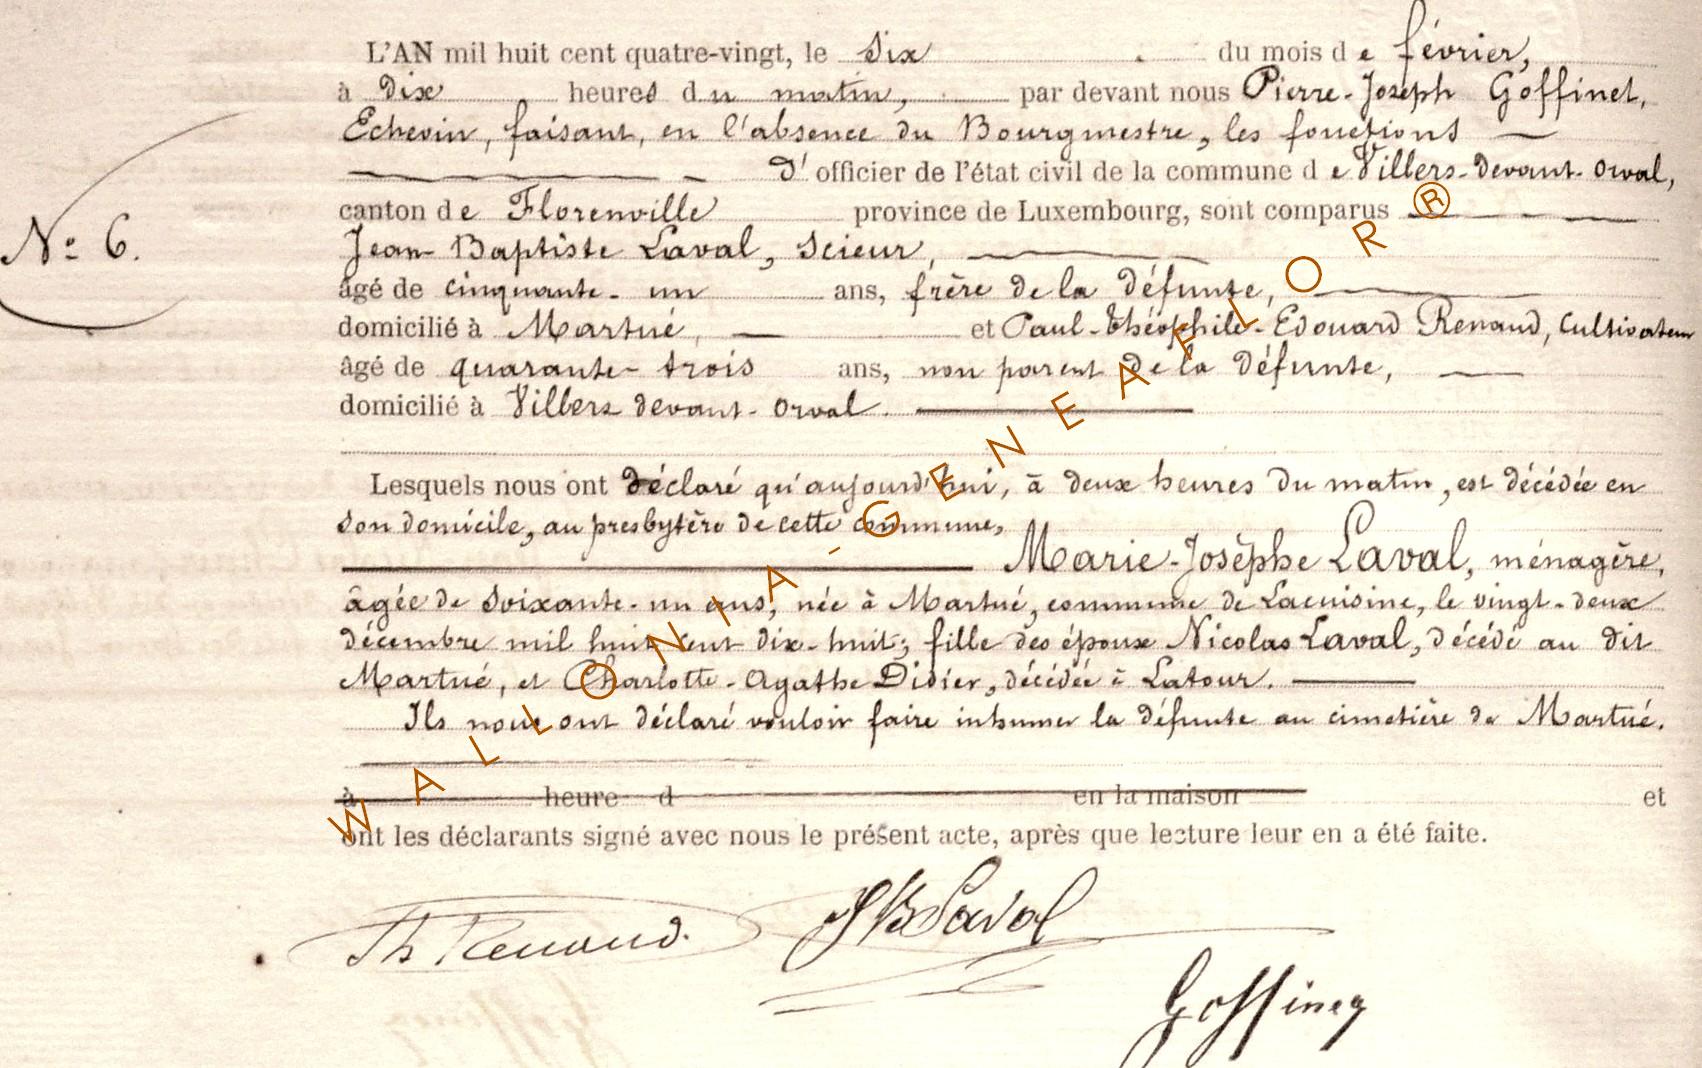 L'AN mil huit cent quatre-vingt, le six du mois de février,
à dix heures du matin, par devant nous Pierre-Joseph Goffinet,
Echevin, faisant, en l'absence du Bourgmestre, les fonctions
d'officier de l'état civil de la commune de Villers-devant-Orval,
canton de Florenville province de Luxembourg, sont comparus
N° 6.
Jean-Baptiste Laval, scieur,
âgé de cinquante-un ans, frère de la défunte,
domicilié à Martué, et Paul-Théophile-Edouard Renaud, cultivateur
âgé de quarante-trois ans, non parent de la défunte,
domicilié à Villers devant-Orval.
Lesquels nous ont déclaré qu'aujourd'hui, à deux heures du matin, est décédée en
son domicile, au presbytère de cette commune,
Marie-Josèphe Laval, ménagère,
âgée de soixante-un ans, née à Martué, commune de Lacuisine, le vingt-deux
décembre mil huit cent dix-huit; fille des époux Nicolas Laval, décédé au dit
Martué, et Charlotte-Agathe Didier, décédée à Latour.
Ils nous ont déclaré vouloir faire inhumer la défunte au cimetière de Martué.
à heure d en la maison et
ont les déclarants signé avec nous le présent acte, après que lecture leur en a été faite.
Th Renaud. JB Laval
Goffinet
WALLONIA-GENEAFLOR®